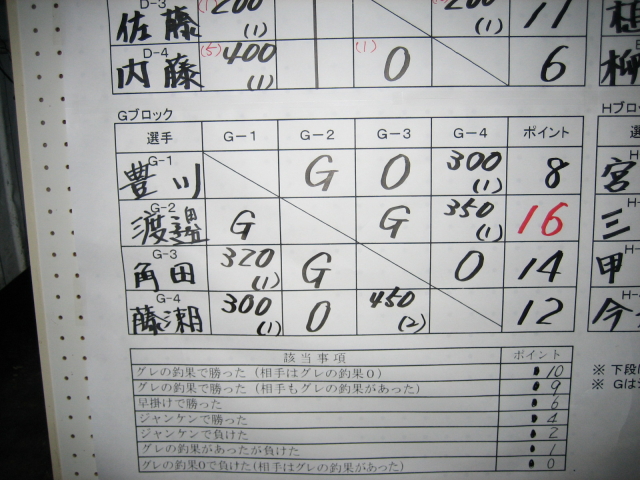 D-3
佐藤 (1) 200 (1) 200 (1) 11
D-4
内藤 (5) 400 (1) (1) 0 6
Gブロック
選手 G-1 G-2 G-3 G-4 ポイント
G-1
豊川 G 0 300 (1) 8
G-2
G G 350 (1) 16
G-3
角田 320 (1) G 0 14
G-4
藤瀬 300 (1) 0 450 (2) 12
該当事項 ポイント
グレの釣果で勝った(相手はグレの釣果0) 10
グレの釣果で勝った(相手もグレの釣果があった) 9
早掛けで勝った 6
ジャンケンで勝った 4
ジャンケンで負けた 2
グレの釣果があったが負けた 1
グレの釣果0で負けた(相手はグレの釣果があった) 0
Hブロ
選
H
宮
H-
三
H-
甲
H-
今
※ 下段
※ Gは